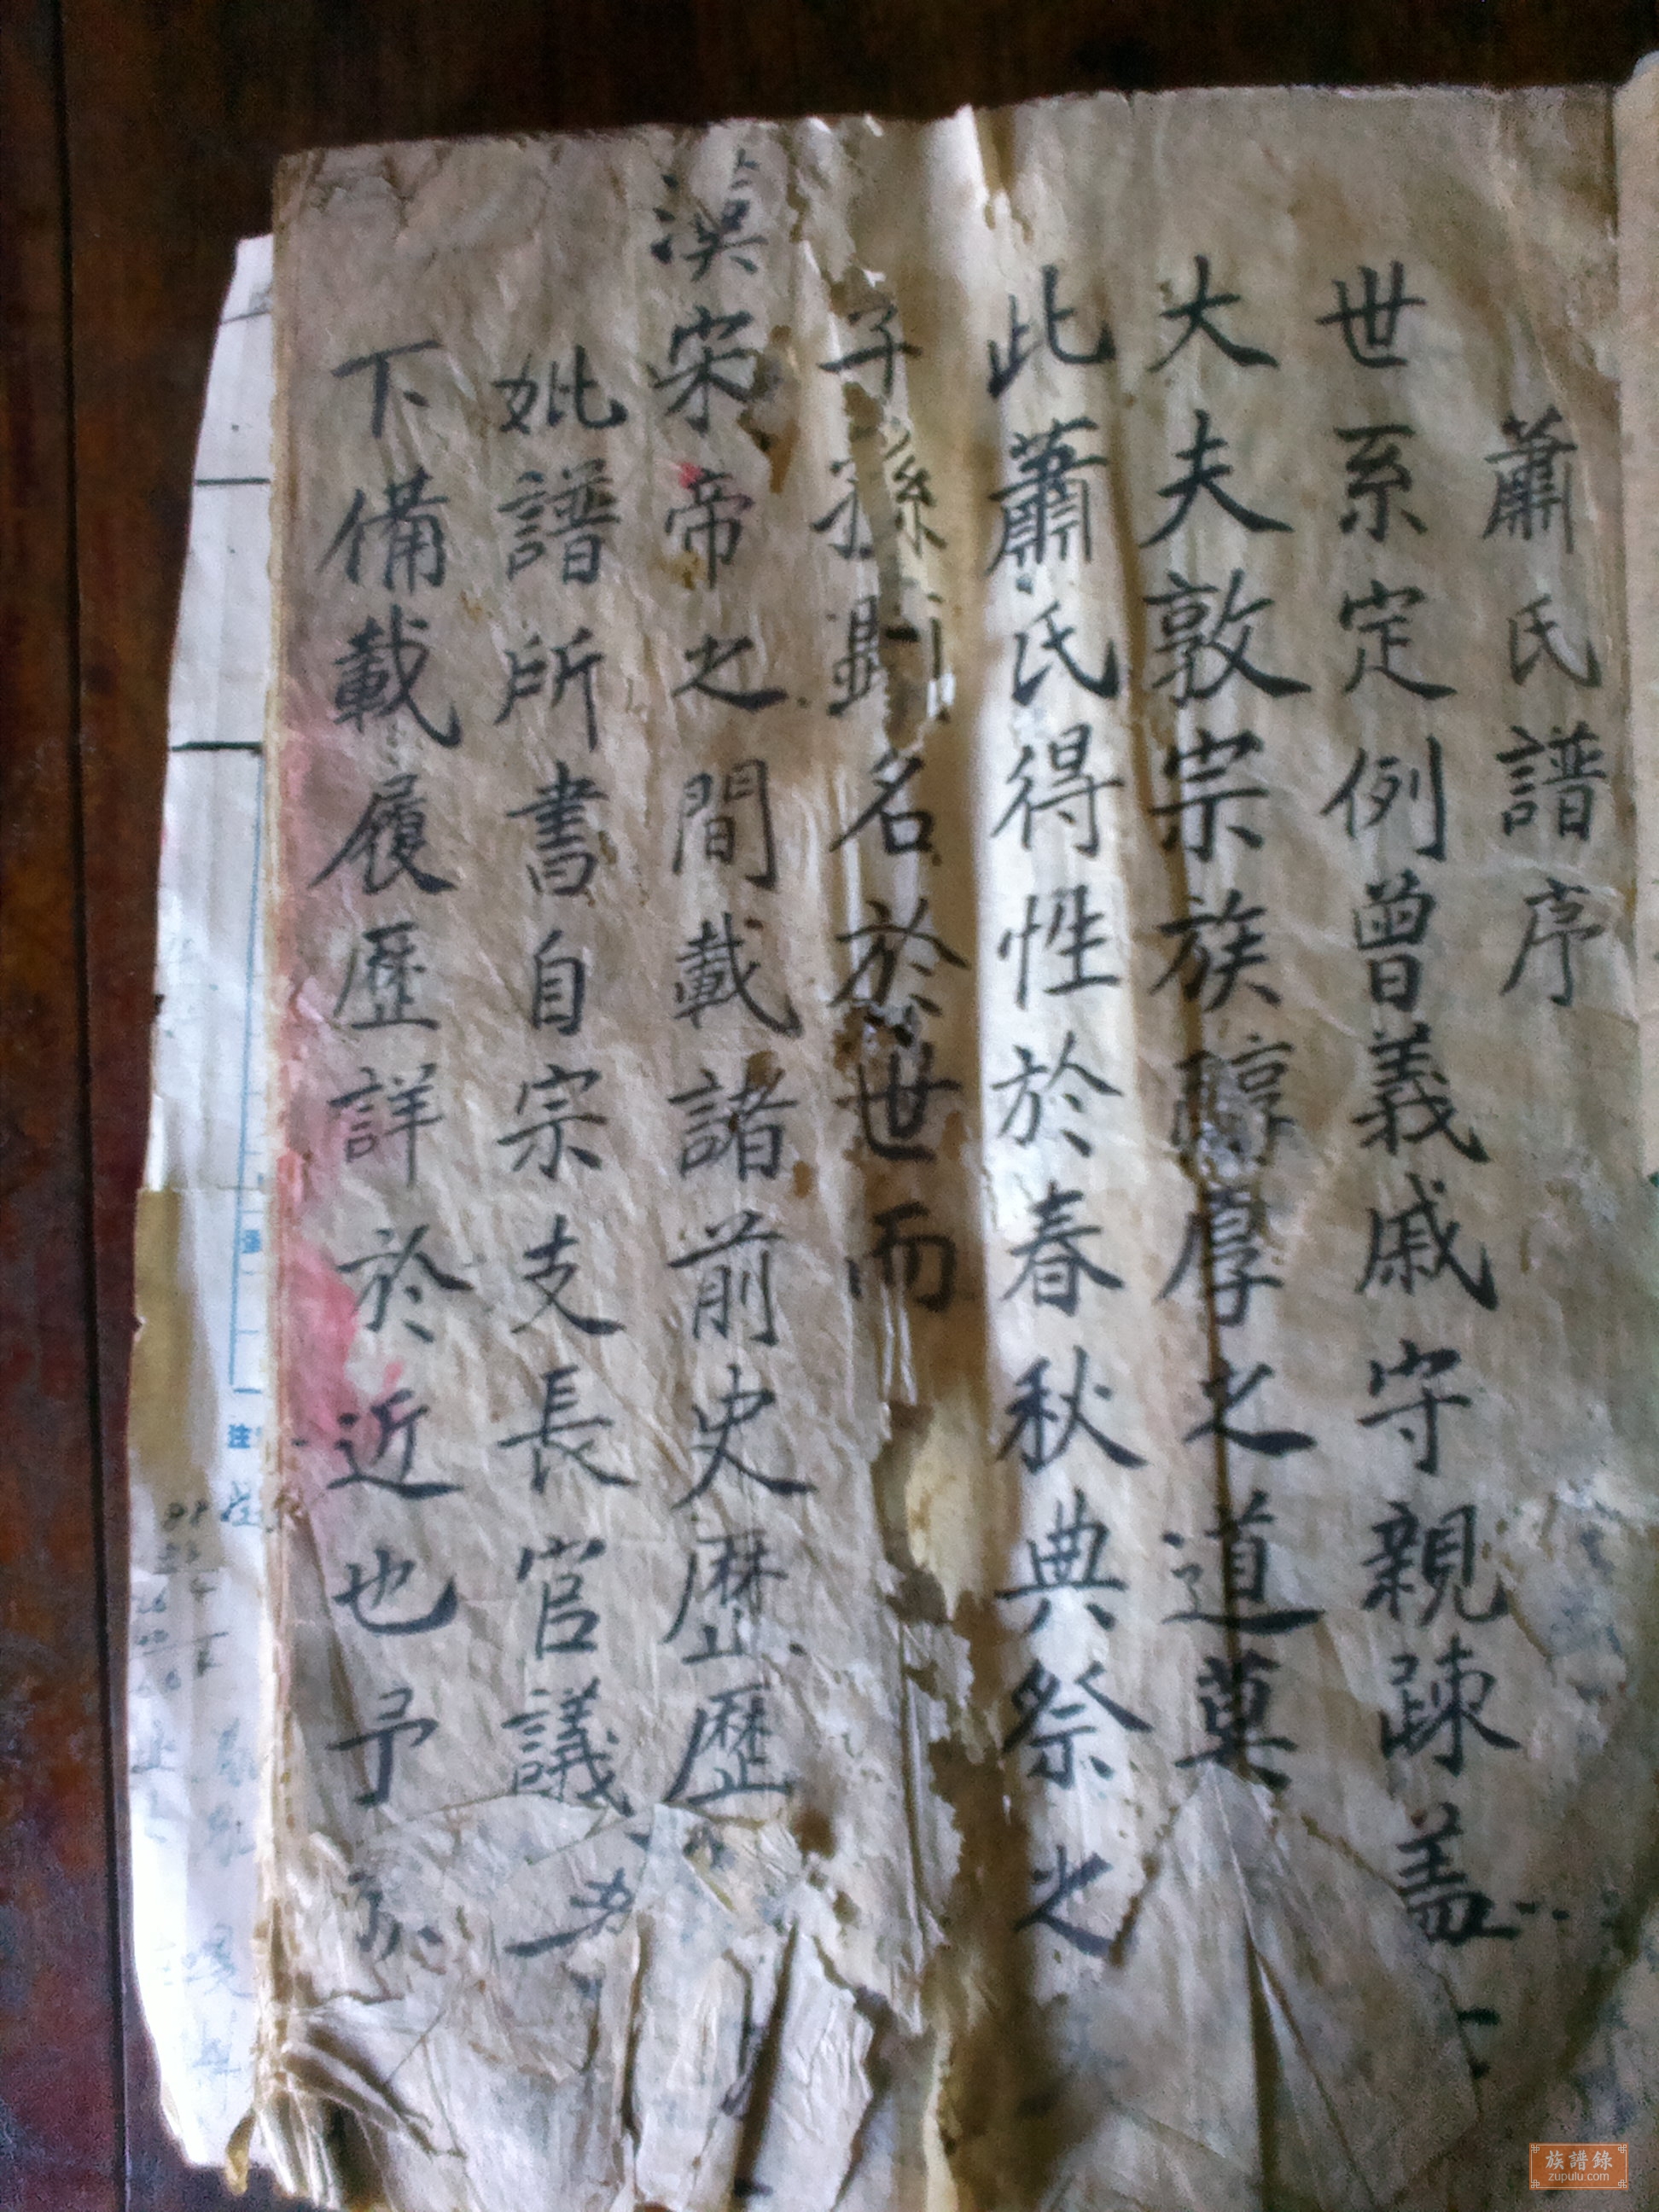 蕭氏譜序
世系定例曾義戚守親疎盖
大夫敦宗族醇厚之道莫
此蕭氏得性於春秋典祭之
子孫則名於世而
漢宋帝之間載諸前史歴歷
妣譜所書自宗支長官議
下備載履歷詳於近也予
族譜錄
zupulu.com